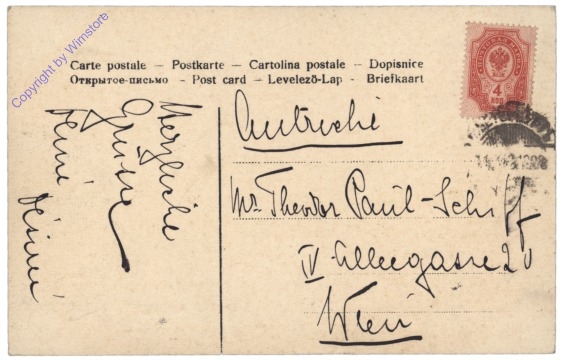 Carte postale – Postkarte – Cartolina postale – Dopisnice
Открытое-письмо - Post card – Levelező-Lap - Briefkaart
Copyright by Wimstore
4
КОП
Herzliche
Grüsse
Autriche
Mr Theodor Paul-Schiff
IV Alleegasse 20
Wien